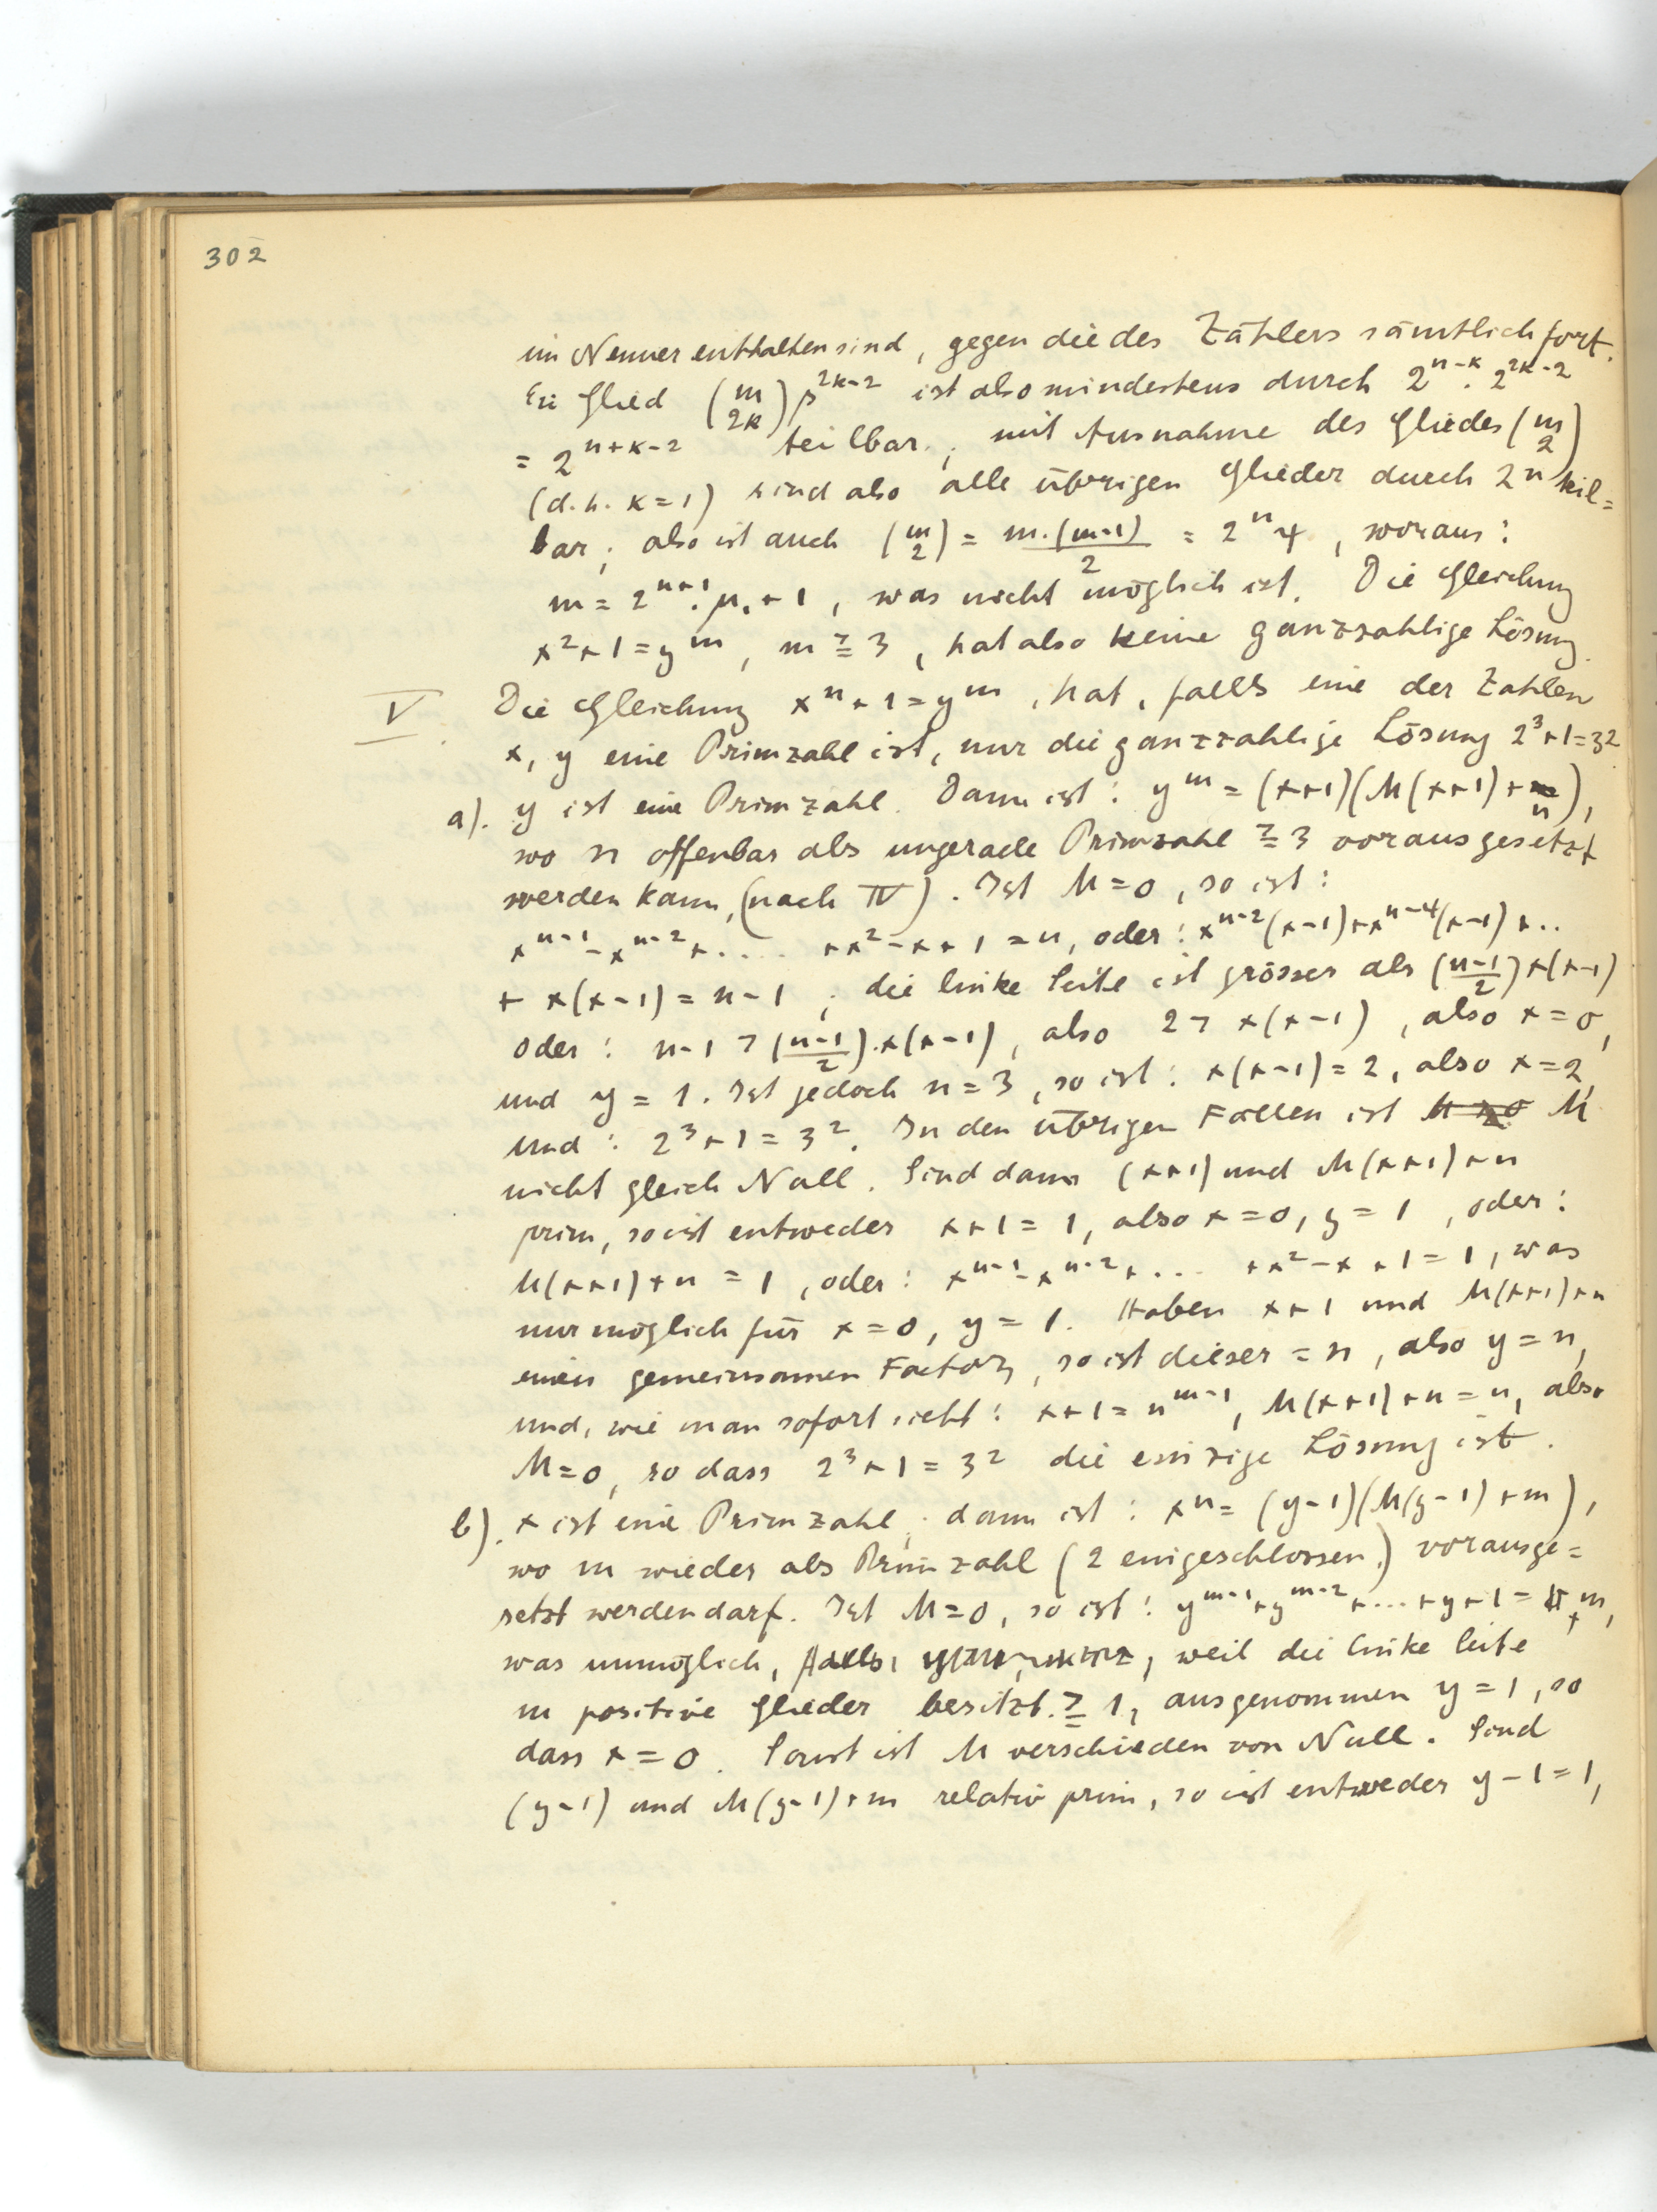 302
im Nenner enthalten sind, gegen die des Zählers sämtlich fort.
Ein Glied (m 2k) β^{2k-2} ist also mindestens durch 2^{n-k}. 2^{2k-2}
= 2^{n+k-2} teilbar; mit Ausnahme des Gliedes (m 2)
(d.h. k=1) sind also alle übrigen Glieder durch 2^n teil=
bar; also ist auch (m 2) = m.(m-1)/2 = 2^n ψ, woraus:
m = 2^{n+1}. μ. + 1, was nicht möglich ist. Die Gleichung
x²+1 = y^m, m ≧ 3, hat also keine ganzzahlige Lösung.
V. Die Gleichung x^n + 1 = y^m, hat, falls eine der Zahlen
x, y eine Primzahl ist, nur die ganzzahlige Lösung 2³+1=3²
a). y ist eine Primzahl. Dann ist: y^m = (x+1)(M(x+1)+n),
wo n offenbar als ungerade Primzahl ≧ 3 vorausgesetzt
werden kann, (nach IV). Ist M=0, so ist:
x^{n-1} - x^{n-2} + .... + x² - x + 1 = n, oder: x^{n-2}(x-1)+x^{n-4}(x-1)+..
+ x(x-1) = n-1; die linke Seite ist grösser als (n-1/2) x(x-1)
oder: n-1 > (n-1/2).x(x-1), also 2 > x(x-1), also x=0,
und y = 1. Ist jedoch n=3, so ist: x(x-1)=2, also x=2,
und: 2³+1 = 3². In den übrigen Fällen ist M
nicht gleich Null. Sind dann (x+1) und M(x+1)+n
prim, so ist entweder x+1 = 1, also x=0, y=1, oder:
M(x+1)+n = 1, oder: x^{n-1} - x^{n-2} + ... + x² - x + 1 = 1, was
nur möglich für x=0, y=1. Haben x+1 und M(x+1)+n
einen gemeinsamen Factor, so ist dieser = n, also y=n,
und, wie man sofort sieht: x+1 = n^{m-1}, M(x+1)+n = n, also
M=0, so dass 2³+1 = 3² die einzige Lösung ist.
b). x ist eine Primzahl; dann ist: x^n = (y-1)(M(y-1)+m),
wo m wieder als Primzahl (2 eingeschlossen) vorausge=
setzt werden darf. Ist M=0, so ist: y^{m-1}+y^{m-2}+...+y+1 = m,
was unmöglich, weil die linke Seite
m positive Glieder besitzt ≧ 1, ausgenommen y=1, so
dass x=0. Sonst ist M verschieden von Null. Sind
(y-1) und M(y-1)+m relativ prim, so ist entweder y-1=1,